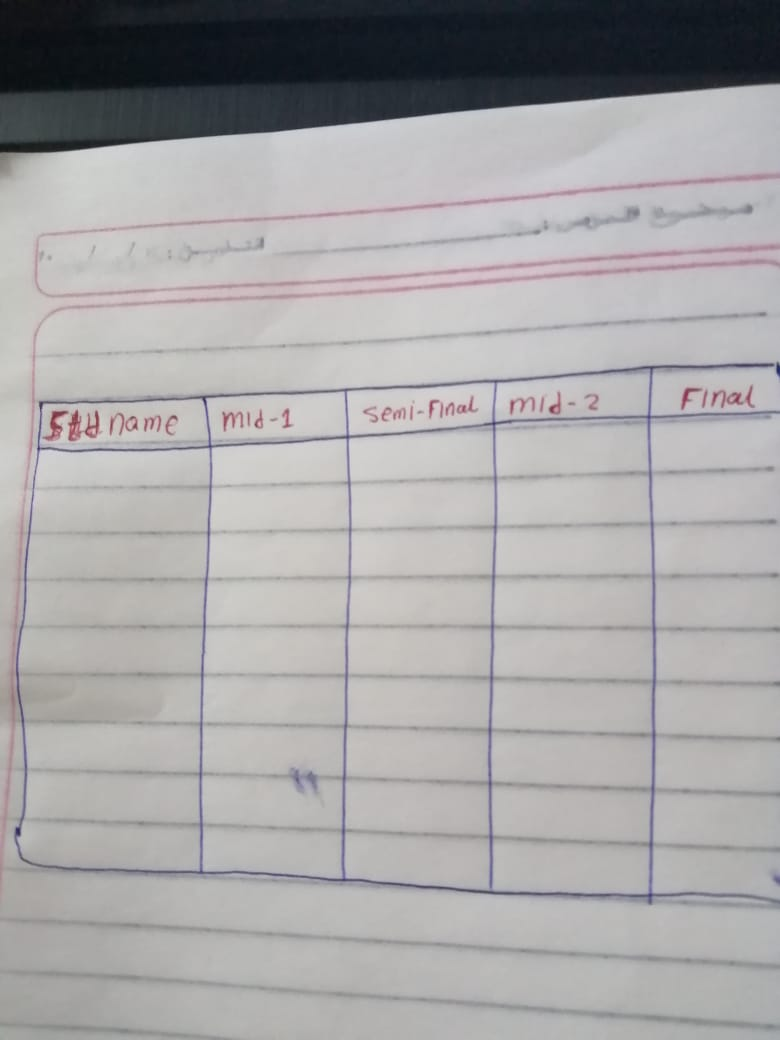 موضوع الدرس: التاريخ: / /
Std name mid-1 semi-Final mid-2 Final